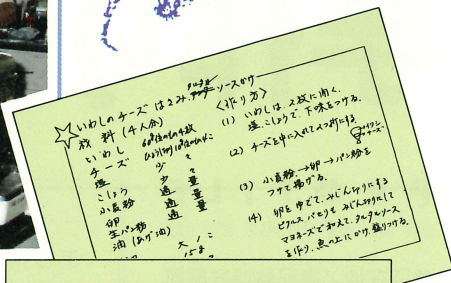 いわしのチーズはさみ
タルタルソースかけ
材料(4人分)
いわし
チーズ
塩 少々
こしょう 少々
小麦粉 適量
卵 適量
生パン粉 適量
油(あげ油)
大1コ
15g
〈作り方〉
(1) いわしは、2枚に開く。
塩、こしょうで、下味をつける。
(2) チーズを中に入れて2つ折にする
イワシ
チーズ
(3) 小麦粉→卵→パン粉を
つけて揚げる。
(4) 卵をゆでて、みじん切りにする
ピクルス パセリもみじん切りにして
マヨネーズで和えて、タルタルソース
を作り、魚の上にかけ、盛りつける。